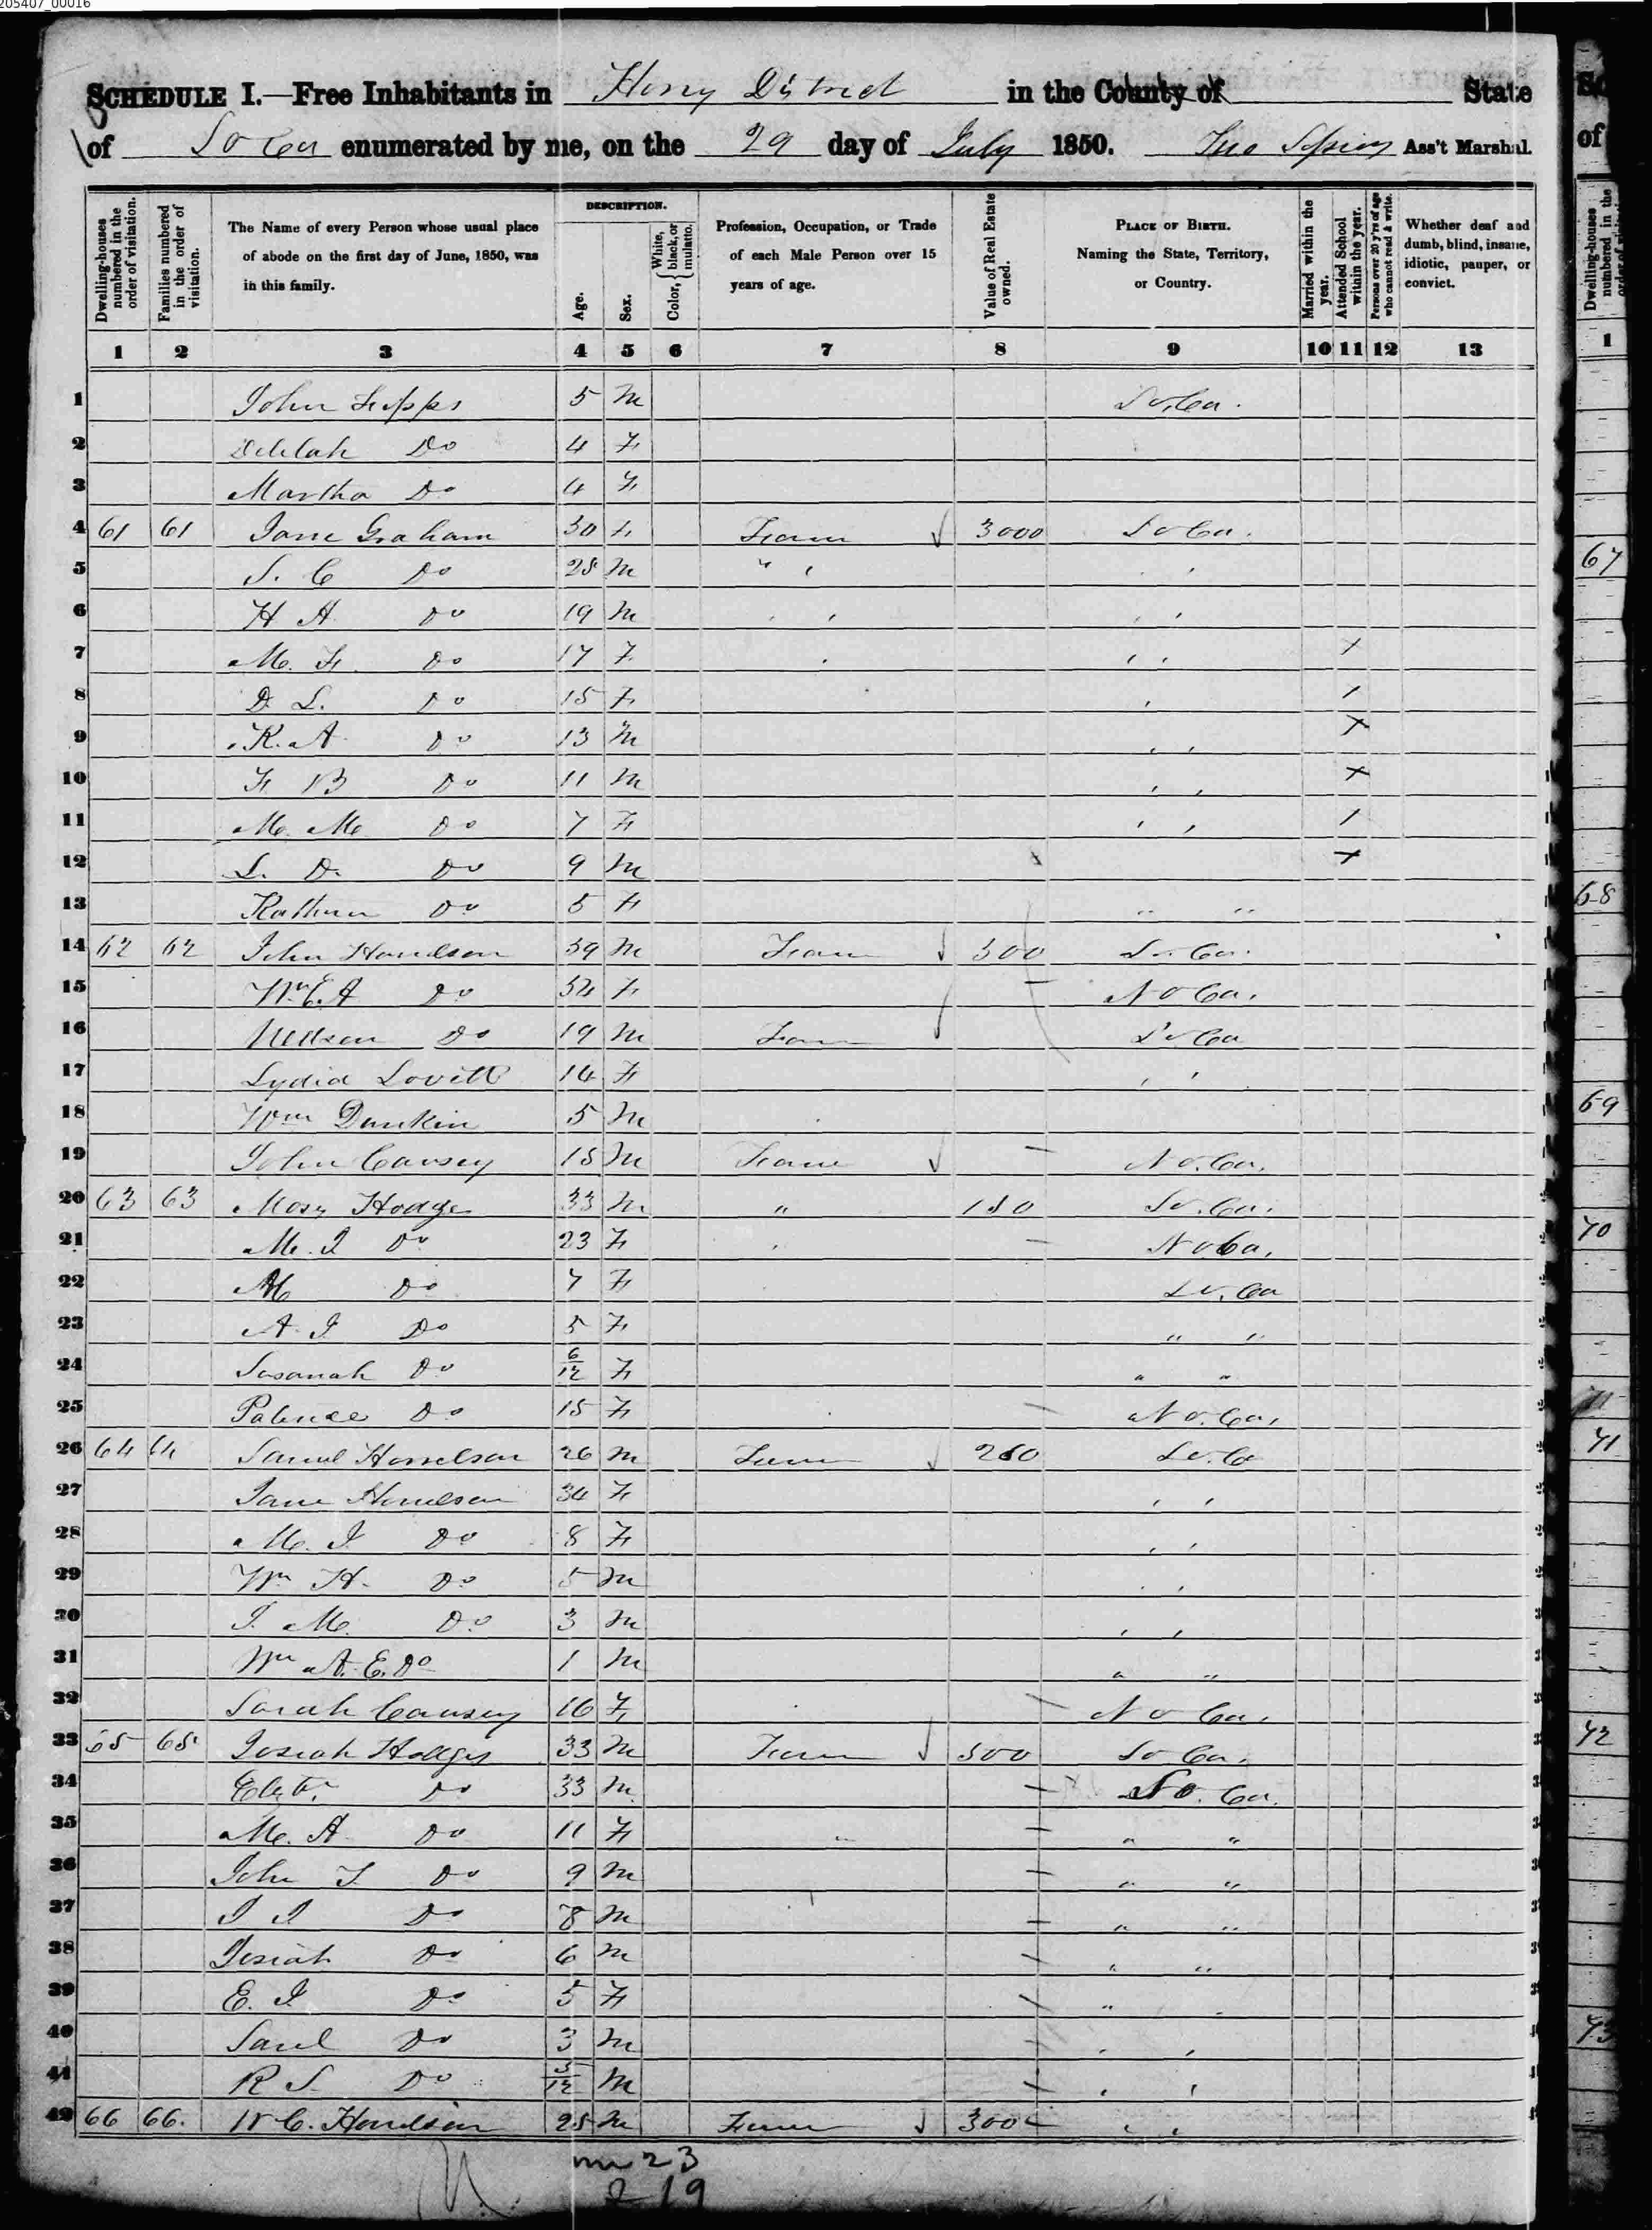 205407_00016
SCHEDULE I.—Free Inhabitants in Horry District in the County of State
of So Ca enumerated by me, on the 29 day of July 1850. Jno Sessions Ass't Marshal.
Dwelling-houses numbered in the order of visitation.
Families numbered in the order of visitation.
The Name of every Person whose usual place of abode on the first day of June, 1850, was in this family.
DESCRIPTION.
Age.
Sex.
Color, White, black, or mulatto.
Profession, Occupation, or Trade of each Male Person over 15 years of age.
Value of Real Estate owned.
PLACE OF BIRTH. Naming the State, Territory, or Country.
Married within the year.
Attended School within the year.
Persons over 20 y'rs of age who cannot read & write.
Whether deaf and dumb, blind, insane, idiotic, pauper, or convict.
1 2 3 4 5 6 7 8 9 10 11 12 13
1 John 5 M So.Ca.
2 Delilah Do 4 F
3 Martha Do 4 F
4 61 61 Jane Graham 30 F Farm 3000 So Ca.
5 S. C Do 28 M " "
6 H A Do 19 M " " " "
7 M. F. Do 17 F " " x
8 D. L. Do 15 F " /
9 K. A Do 13 M " " x
10 F B Do 11 M " " x
11 M. M. Do 7 F " " /
12 L. D. Do 9 M x
13 Do 5 F " "
14 62 62 John 39 M Farm 300 So. Ca.
15 Do F No Ca.
16 Do 19 M Farm So Ca
17 Lydia Lovett 14 F " "
18 Wm Dunkin 5 M
19 John Causey 18 M Farm No. Ca.
20 63 63 Mosy Hodge 33 M " 150 So. Ca.
21 M. J Do 23 F No Ca.
22 M Do 7 F So. Ca
23 A. J Do 5 F " "
24 Susanah Do 6/12 F " "
25 Do 15 F No. Ca.
26 64 64 Samuel Horrelson 26 M Farm 260 So. Ca
27 Jane Horrelson 34 F " "
28 M. J Do 8 F " "
29 Wm H. Do 5 M " "
30 J. M. Do 3 M " "
31 Wm A. E. Do 1 M " "
32 Sarah Causey 16 F No Ca.
33 65 65 Josiah Hodges 33 M Farm 500 So Ca.
34 Do 33 M No. Ca.
35 M. A Do 11 F " "
36 John T Do 9 M " "
37 J J Do 8 M " "
38 Josiah Do 6 M " "
39 E. J Do 5 F "
40 Saml Do 3 M " "
41 R S. Do 5/12 M " "
42 66 66. W C. Horrelson 25 M Farm 300 " "
m 23
f 19
of
Dwelling-houses numbered in the
1
67
68
69
70
71
72
73